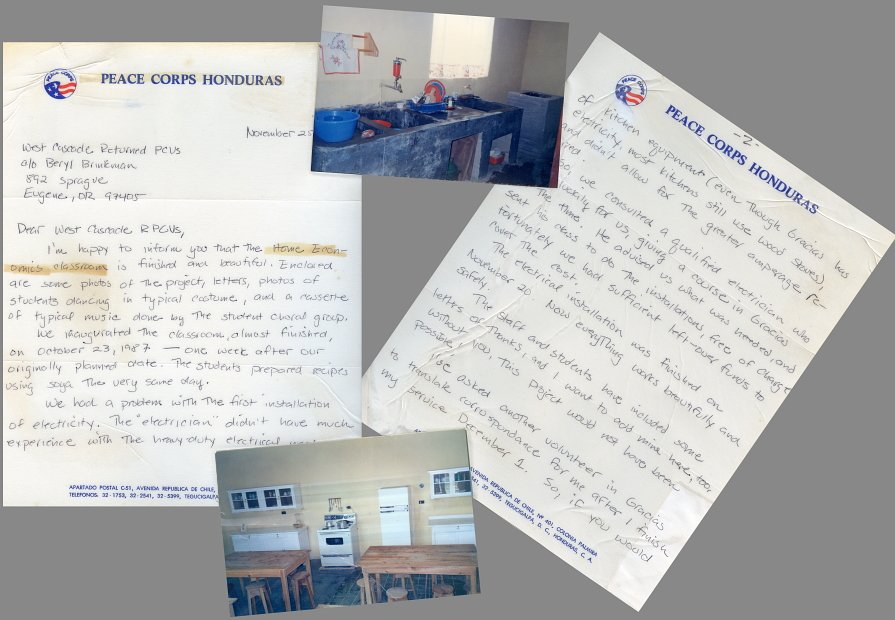 PEACE CORPS
PEACE CORPS HONDURAS
November 25
West Cascade Returned PCVs
c/o Beryl Brinkman
892 Sprague
Eugene, OR 97405
Dear West Cascade RPCVs,
I'm happy to inform you that the Home Econ-
omics classroom is finished and beautiful. Enclosed
are some photos of the project, letters, photos of
students dancing in typical costume, and a cassette
of typical music done by the student choral group.
We inaugurated the classroom, almost finished,
on October 23, 1987 — one week after our
originally planned date. The students prepared recipes
using soya the very same day.
We had a problem with the first installation
of electricity. The "electrician" didn't have much
experience with the heavy duty electrical
APARTADO POSTAL C-51, AVENIDA REPUBLICA DE CHILE,
TELEFONOS. 32-1753, 32-2541, 32-5399, TEGUCIGALPA
PEACE CORPS
PEACE CORPS HONDURAS
-2-
of kitchen equipment (even though Gracias has
electricity, most kitchens still use wood stoves),
and didn't allow for the greater amperage re-
so, we consulted a qualified electrician who
luckily for us, giving a course in Gracias
the time. He advised us what was needed, and
sent his class to do the installations, free of charge!
Fortunately we had sufficient left-over funds to
cover the cost.
The electrical installation was finished on
November 20. Now everything works beautifully and
safely.
The staff and students have included some
letters of thanks, and I want to add mine here, too.
Without you, this project would not have been
possible.
asked another volunteer in Gracias
to translate correspondance for me after I finish
my service December 1. So, if you would
AVENIDA REPUBLICA DE CHILE, Nº 401, COLONIA PALMIRA
32-5399, TEGUCIGALPA, D. C., HONDURAS, C. A.